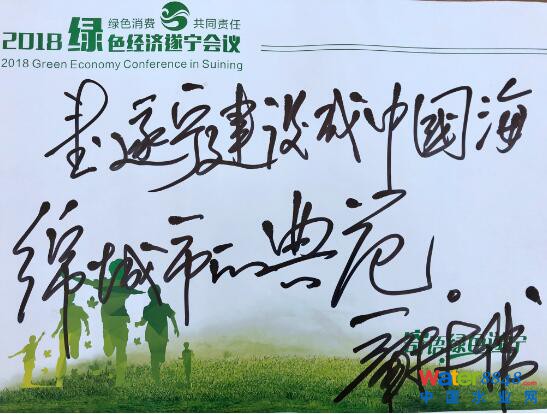 绿色消费 共同责任
2018 绿色经济遂宁会议
2018 Green Economy Conference in Suining
遂宁建设成中国海
绵城市的典范。
寄语绿色遂宁
Water8848.com
中国水业网